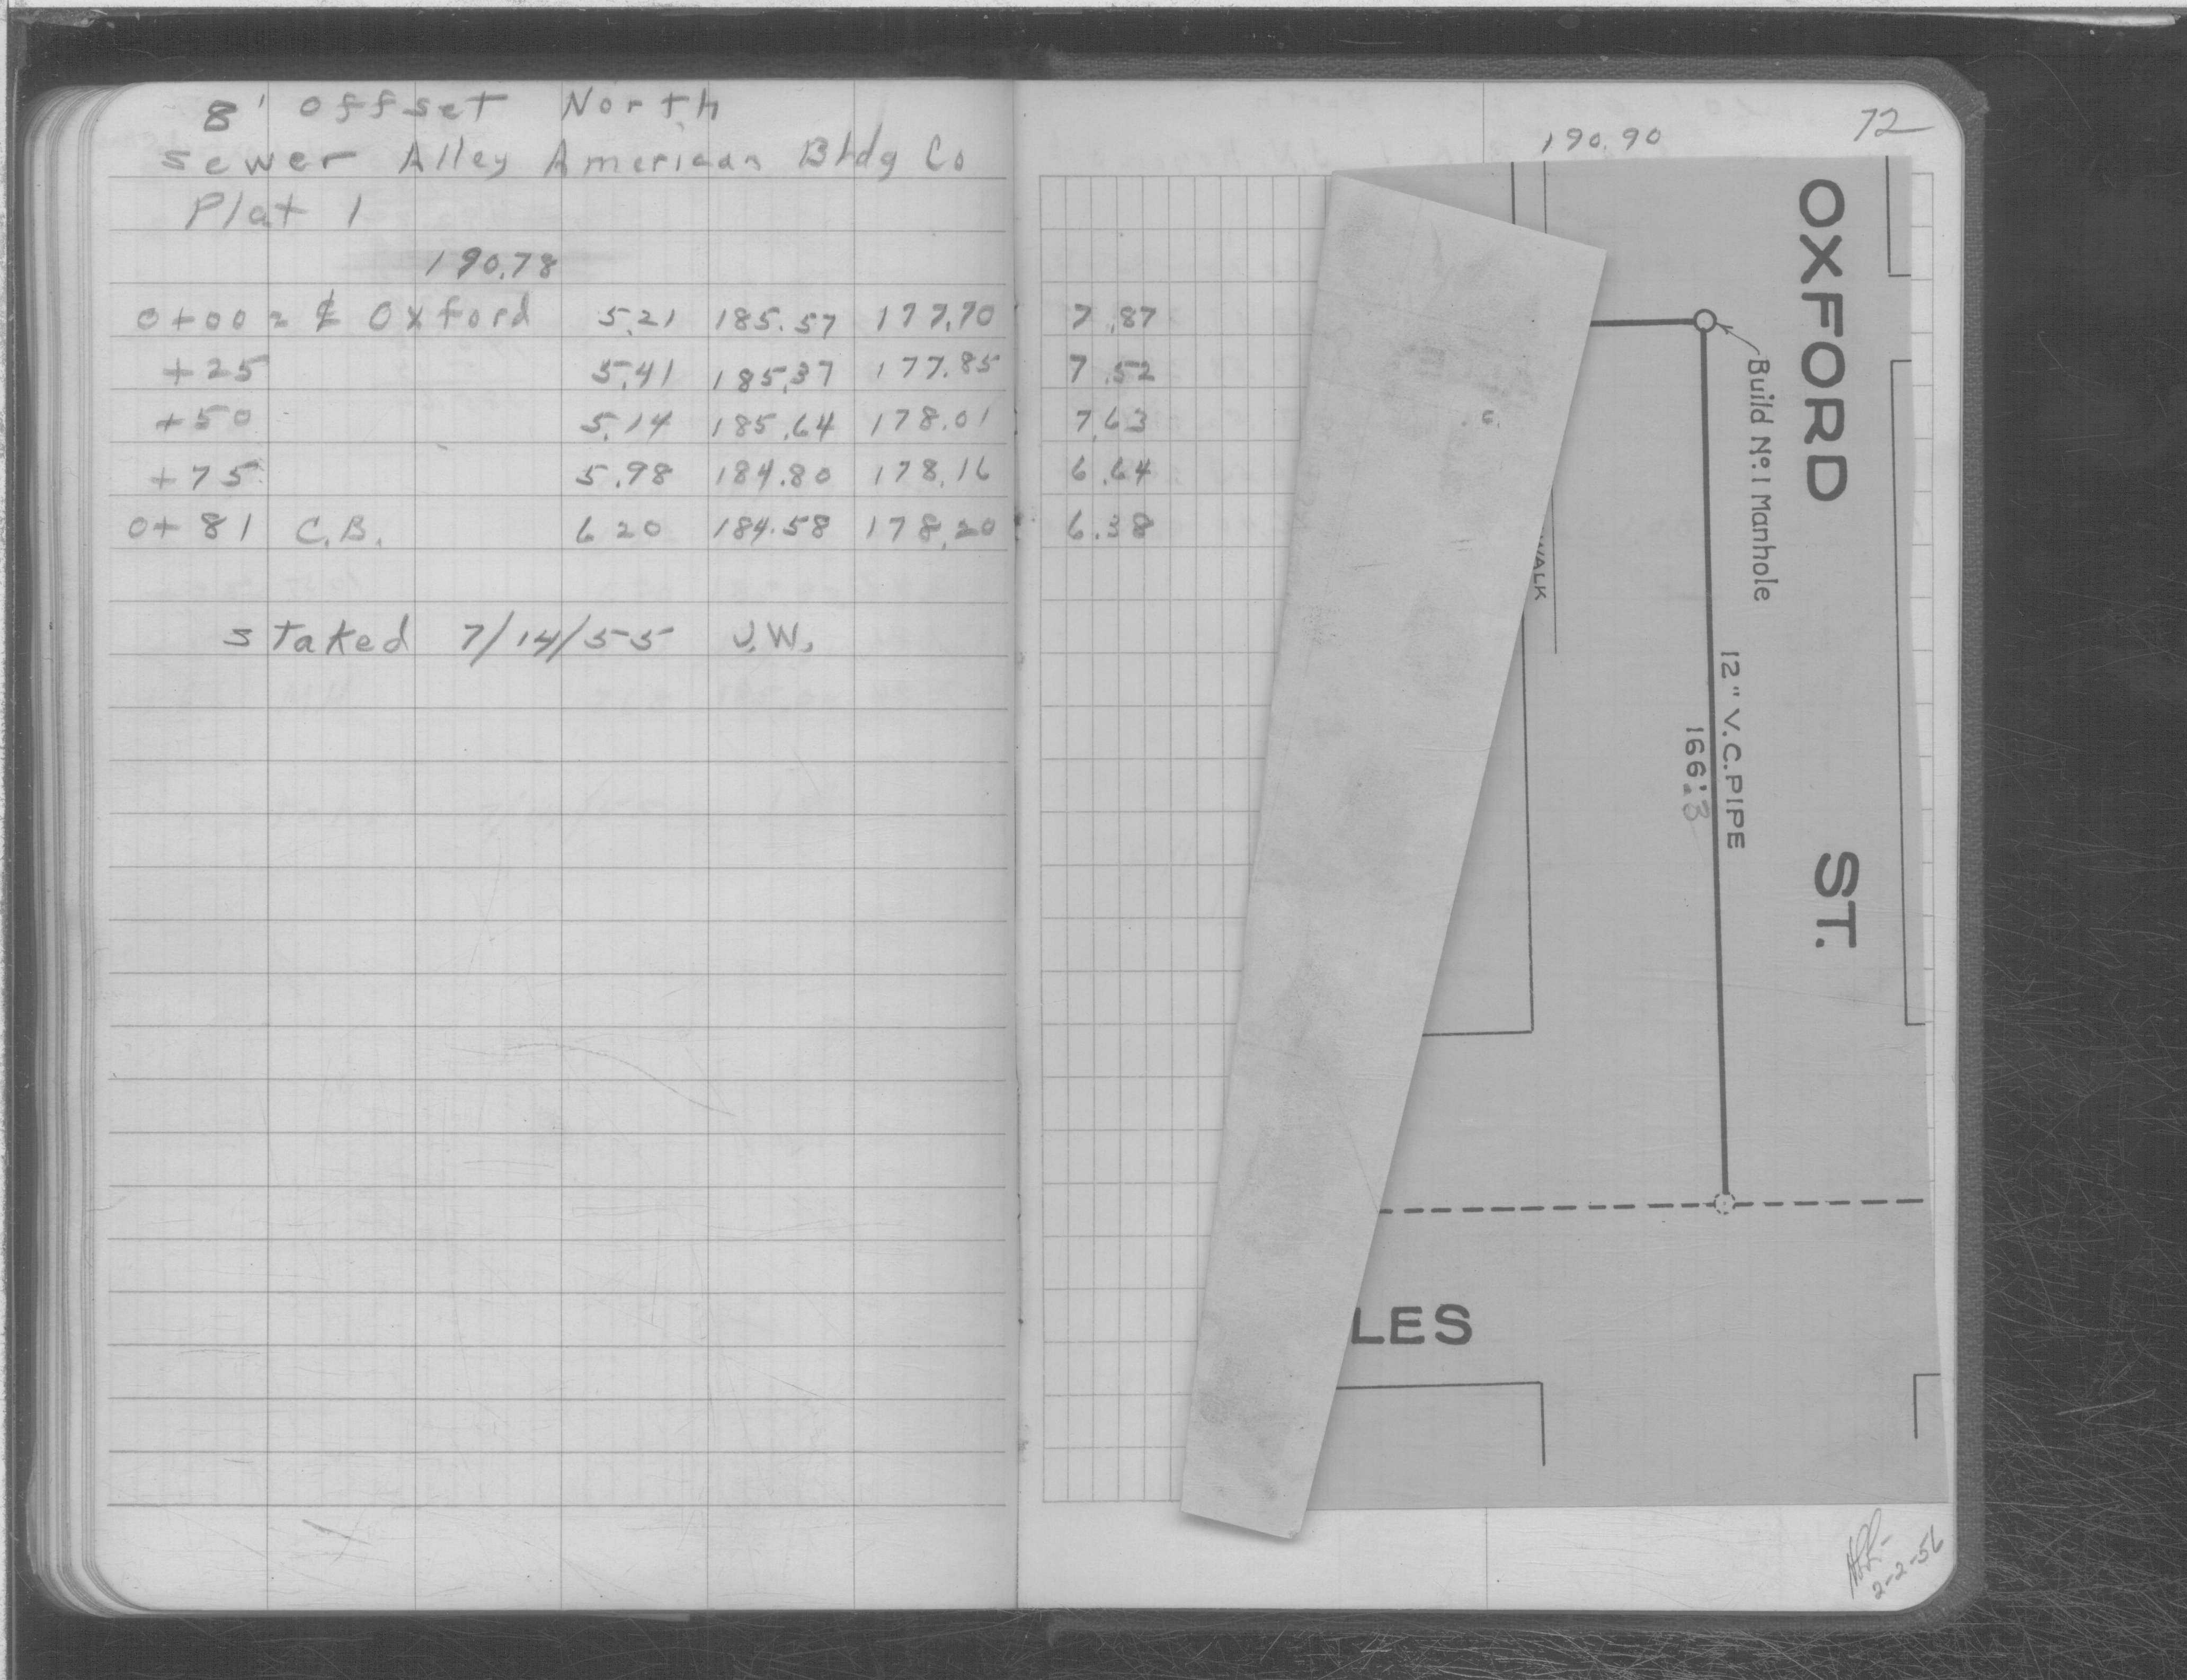 8' offset North
sewer Alley American Bldg Co
Plat 1
190.78
0+00 = ℄ Oxford 5.21 185.57 177.70 7.87
+25 5.41 185.37 177.85 7.52
+50 5.14 185.64 178.01 7.63
+75 5.98 184.80 178.16 6.64
0+81 C.B. 6 20 184.58 178.20 6.38
staked 7/14/55 J.W.
72
190.90
OXFORD ST.
Build Nº. 1 Manhole
12" V.C. PIPE
166.'3
WALK
LES
2-2-56